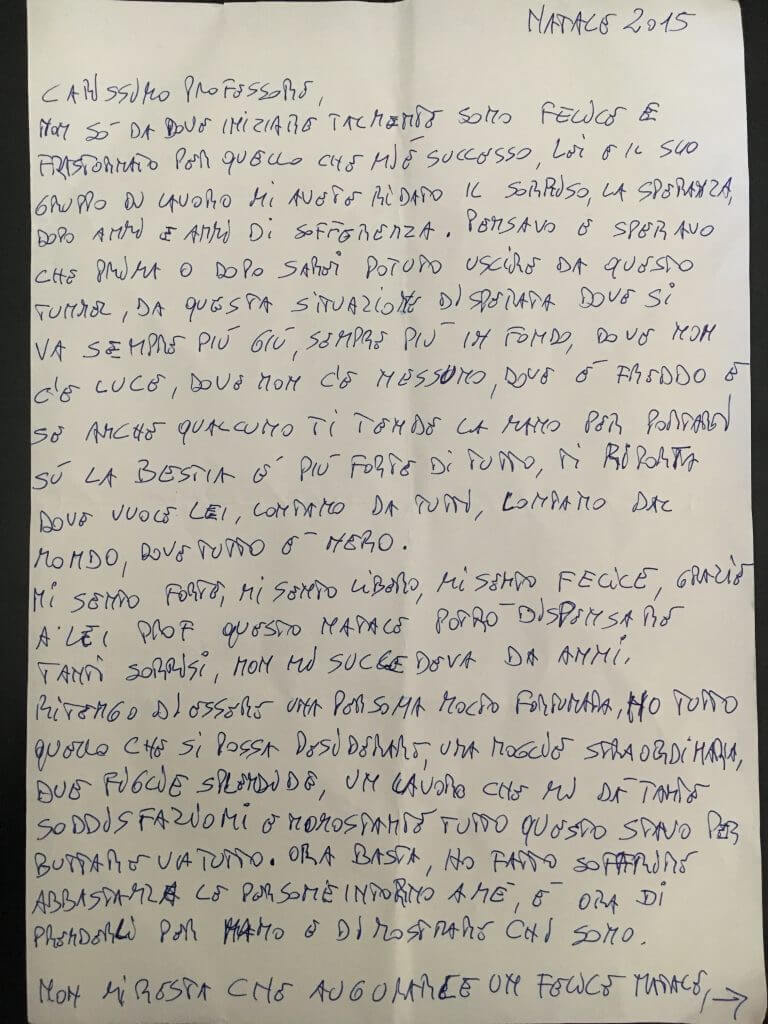 NATALE 2015
CARISSIMO PROFESSORE,
NON SÒ DA DOVE INIZIARE TALMENTE SONO FELICE E
FRASTORNATO PER QUELLO CHE MI È SUCCESSO, LEI E IL SUO
GRUPPO DI LAVORO MI AVETE RIDATO IL SORRISO, LA SPERANZA,
DOPO ANNI E ANNI DI SOFFERENZA. PENSAVO E SPERAVO
CHE PRIMA O DOPO SAREI POTUTO USCIRE DA QUESTO
TUNNEL, DA QUESTA SITUAZIONE DISPERATA DOVE SI
VA SEMPRE PIÙ GIÙ, SEMPRE PIÙ IN FONDO, DOVE NON
C'È LUCE, DOVE NON C'È NESSUNO, DOVE È FREDDO E
SE ANCHE QUALCUNO TI TENDE LA MANO PER PORTARTI
SÙ LA BESTIA È PIÙ FORTE DI TUTTO, TI RIPORTA
DOVE VUOLE LEI, LONTANO DA TUTTI, LONTANO DAL
MONDO, DOVE TUTTO È NERO.
MI SENTO FORTE, MI SENTO LIBERO, MI SENTO FELICE, GRAZIE
A LEI PROF QUESTO NATALE POTRÒ DISPENSARE
TANTI SORRISI, NON MI SUCCEDEVA DA ANNI.
RITENGO DI ESSERE UNA PERSONA MOLTO FORTUNATA, HO TUTTO
QUELLO CHE SI POSSA DESIDERARE, UNA MOGLIE STRAORDINARIA,
DUE FIGLIE SPLENDIDE, UN LAVORO CHE MI DÀ TANTE
SODDISFAZIONI E NONOSTANTE TUTTO QUESTO STAVO PER
BUTTARE VIA TUTTO. ORA BASTA, HO FATTO SOFFRIRE
ABBASTANZA LE PERSONE INTORNO A ME, È ORA DI
PRENDERLI PER MANO E DIMOSTRARE CHI SONO.
NON MI RESTA CHE AUGURARLE UN FELICE NATALE, →